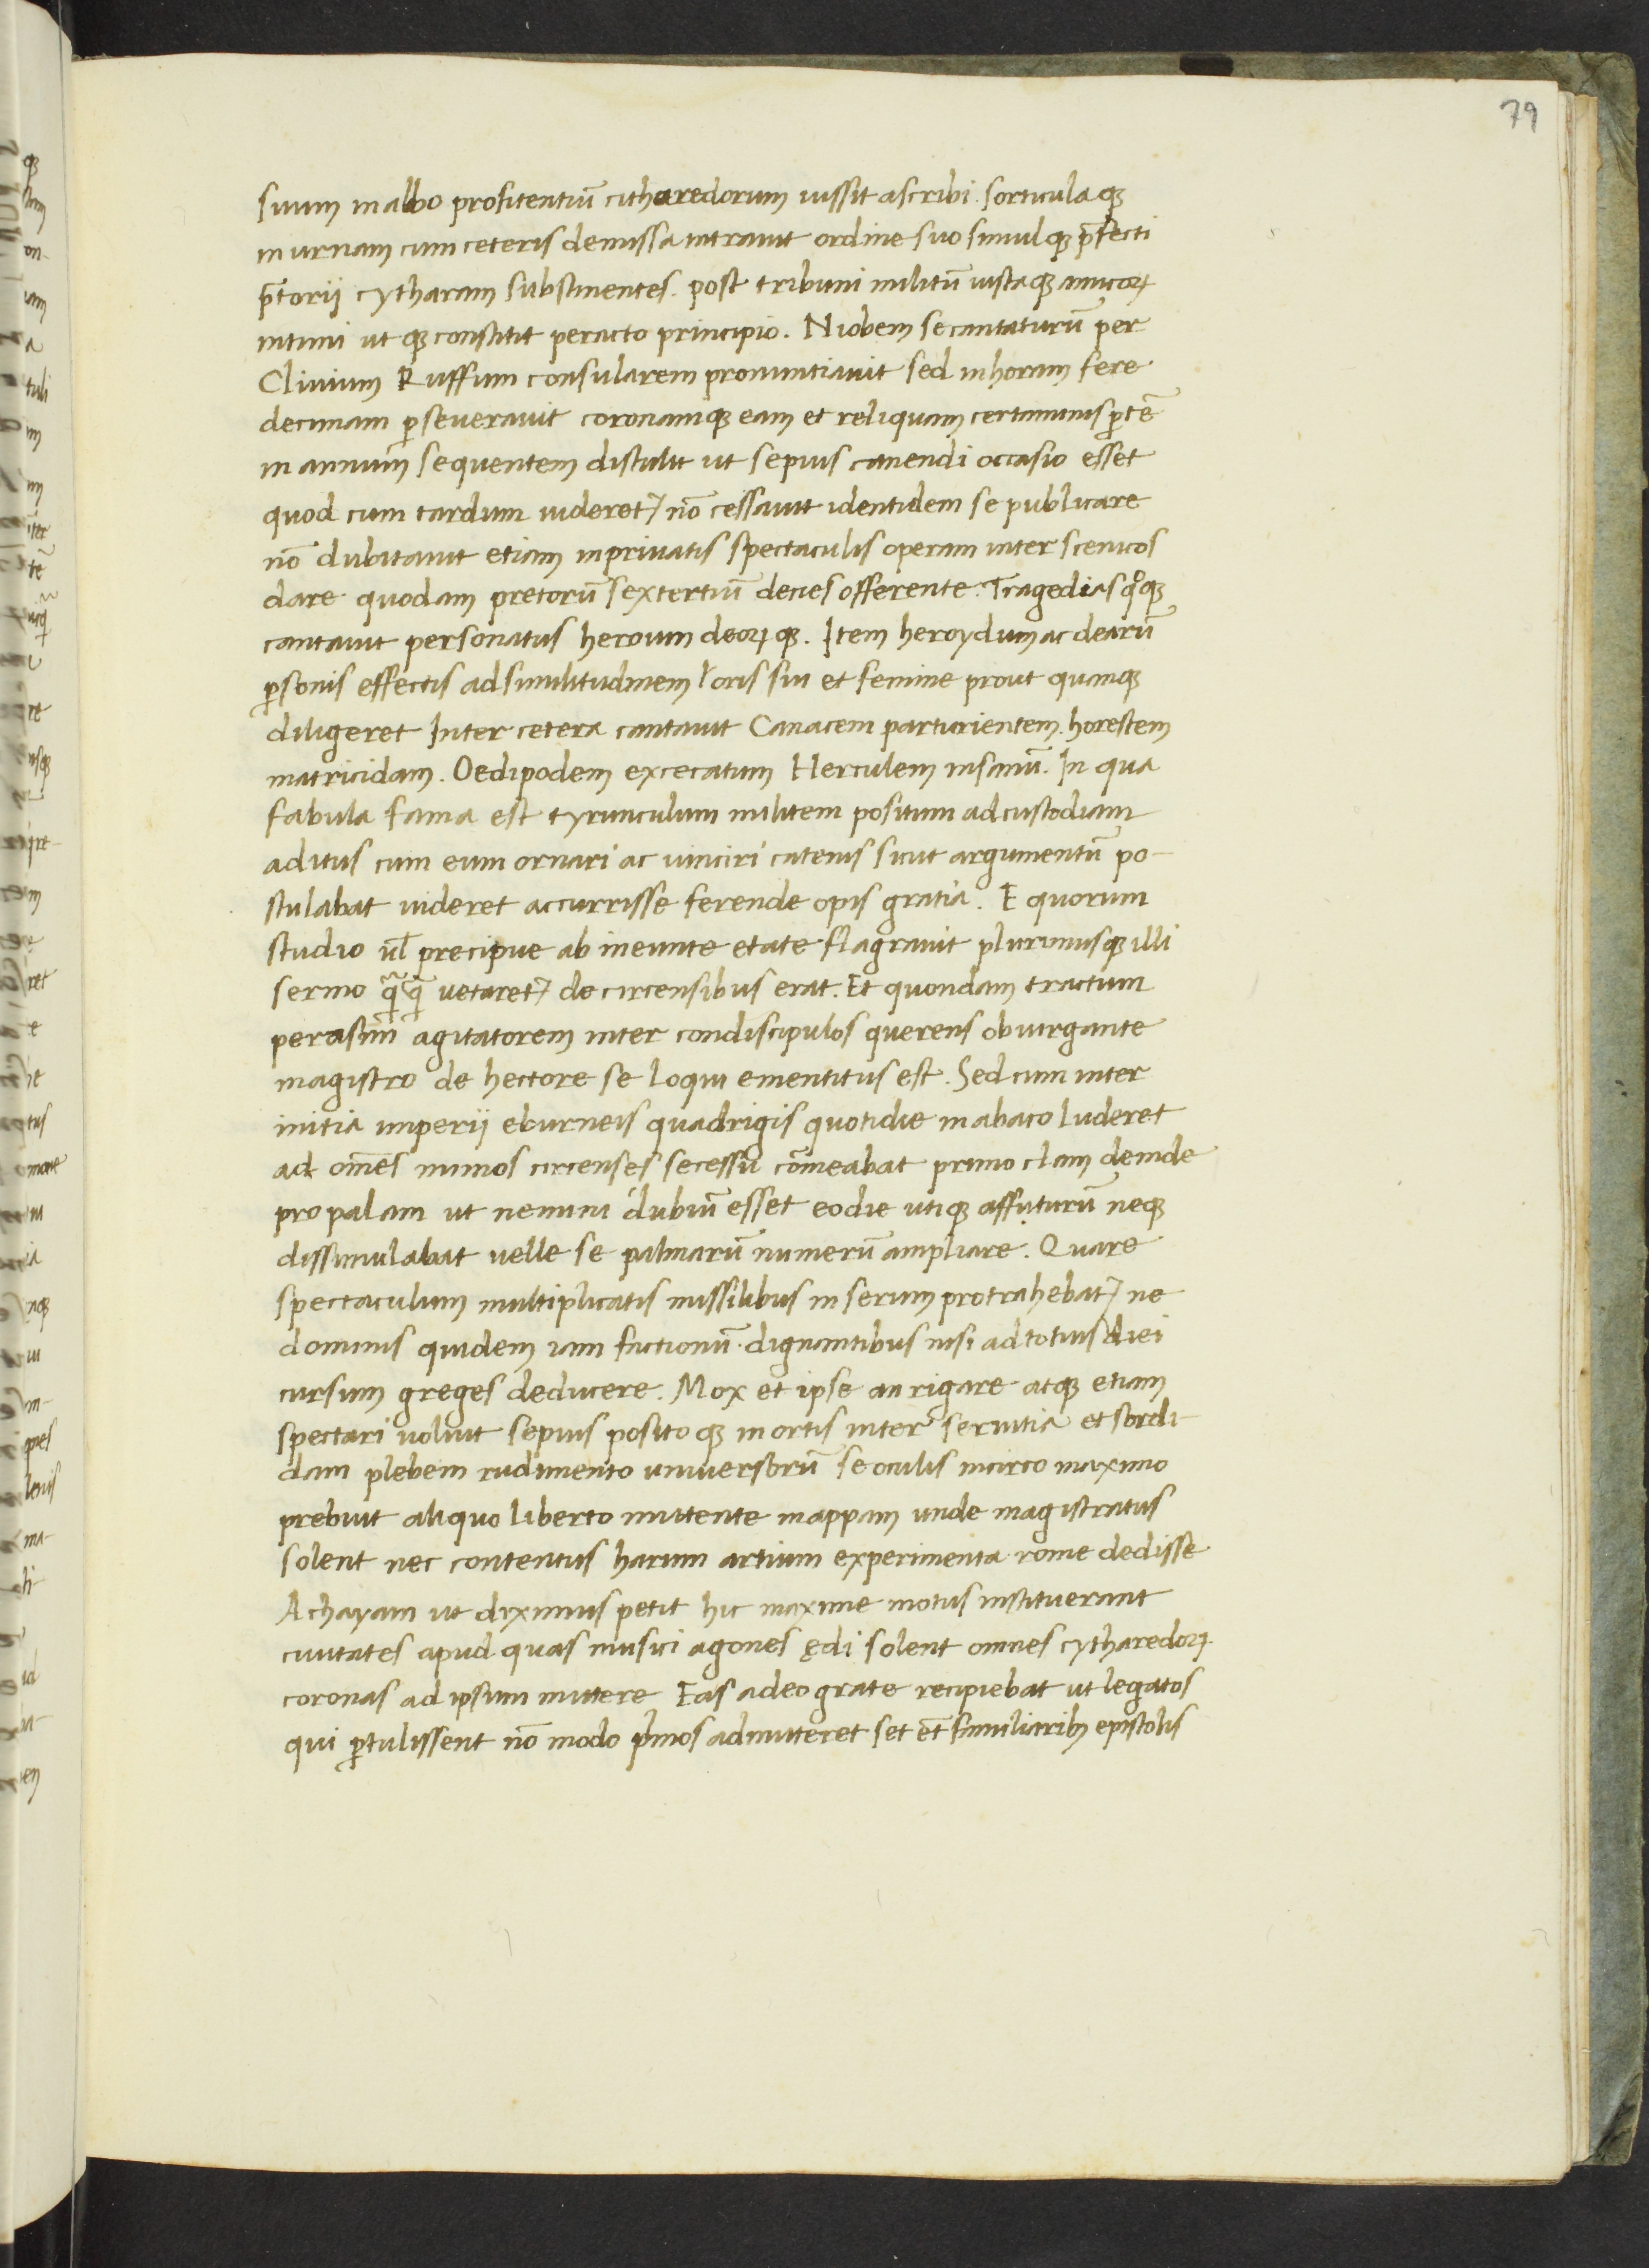 79
suum in albo profitentiū citharedorum iussit ascribi. sorticulaqꝫ
in urnam cum ceteris demissa intrauit ordine suo simulqꝫ p̄fecti
p̄torij cytharam substinentes. post tribuni militū iustaqꝫ amicoꝝ
intimi ut qꝫ constitit peracto principio. Niobem se cantaturū per
Cliuium Ruffum consularem pronuntiauit sed in horam fere
decimam ꝑseuerauit coronamqꝫ eam et reliquam certaminis ꝑtē
in annum sequentem distulit ut sepius canendi occasio esset
quod cum tardum uideret᷑ nō cessauit identidem se publicare
nō dubitauit etiam in priuatis spectaculis operam inter scenicos
dare quodam pretorū sextertiū decies offerente. Tragedias qͦqꝫ
cantauit personatus heroum deoꝝqꝫ. Item heroydum ac dearū
ꝑsonis effectis ad similitudinem ł oris sui et femine prout quamqꝫ
diligeret Inter cetera cantauit Canacem parturientem. horestem
matricidam. Oedipodem excecatum Herculem insanū. In qua
fabula fama est tyrunculum militem positum ad custodiam
aditus cum eum ornari ac uinciri catenis sicut argumentū po-
stulabat uideret accurrisse ferende opis gratia. Equorum
studio ul̄ precipue ab ineunte etate flagrauit plurimusqꝫ illi
sermo q̄q̄ uetaret᷑ de circensibus erat. Et quondam tractum
perasinū agitatorem inter condiscipulos querens obiurgante
magistro de hectore se loqui ementitus est. Sed cum inter
initia imperij eburneis quadrigis quotidie in abaco luderet
ad om̄es mimos circenses secessū cōmeabat primo clam deinde
propalam ut nemini dubiū esset eo die utiqꝫ affuturū neqꝫ
dissimulabat uelle se palmarū numerū ampliare. Quare
spectaculum multiplicatis missilibus in serum protrahebat᷑ ne
dominis quidem iam factionū dignantibus nisi ad totius diei
cursum greges deducere. Mox et ipse aurigare atqꝫ etiam
spectari uoluit sepius positoqꝫ in ortis inter seruitia et sordi-
dam plebem rudimento uniuersorū se oculis in circo maximo
prebuit aliquo liberto mittente mappam unde magistratus
solent nec contentus harum artium experimenta rome dedisse
Achayam ut diximus petit hic maxime motus instituerant
ciuitates apud quas musici agones ędi solent omnes cytharedoꝝ
coronas ad ipsum mittere Eas adeo grate recipiebat ut legatos
qui ꝑtulissent nō modo pͥmos admitteret set et̄ familiaribꝫ epistolis